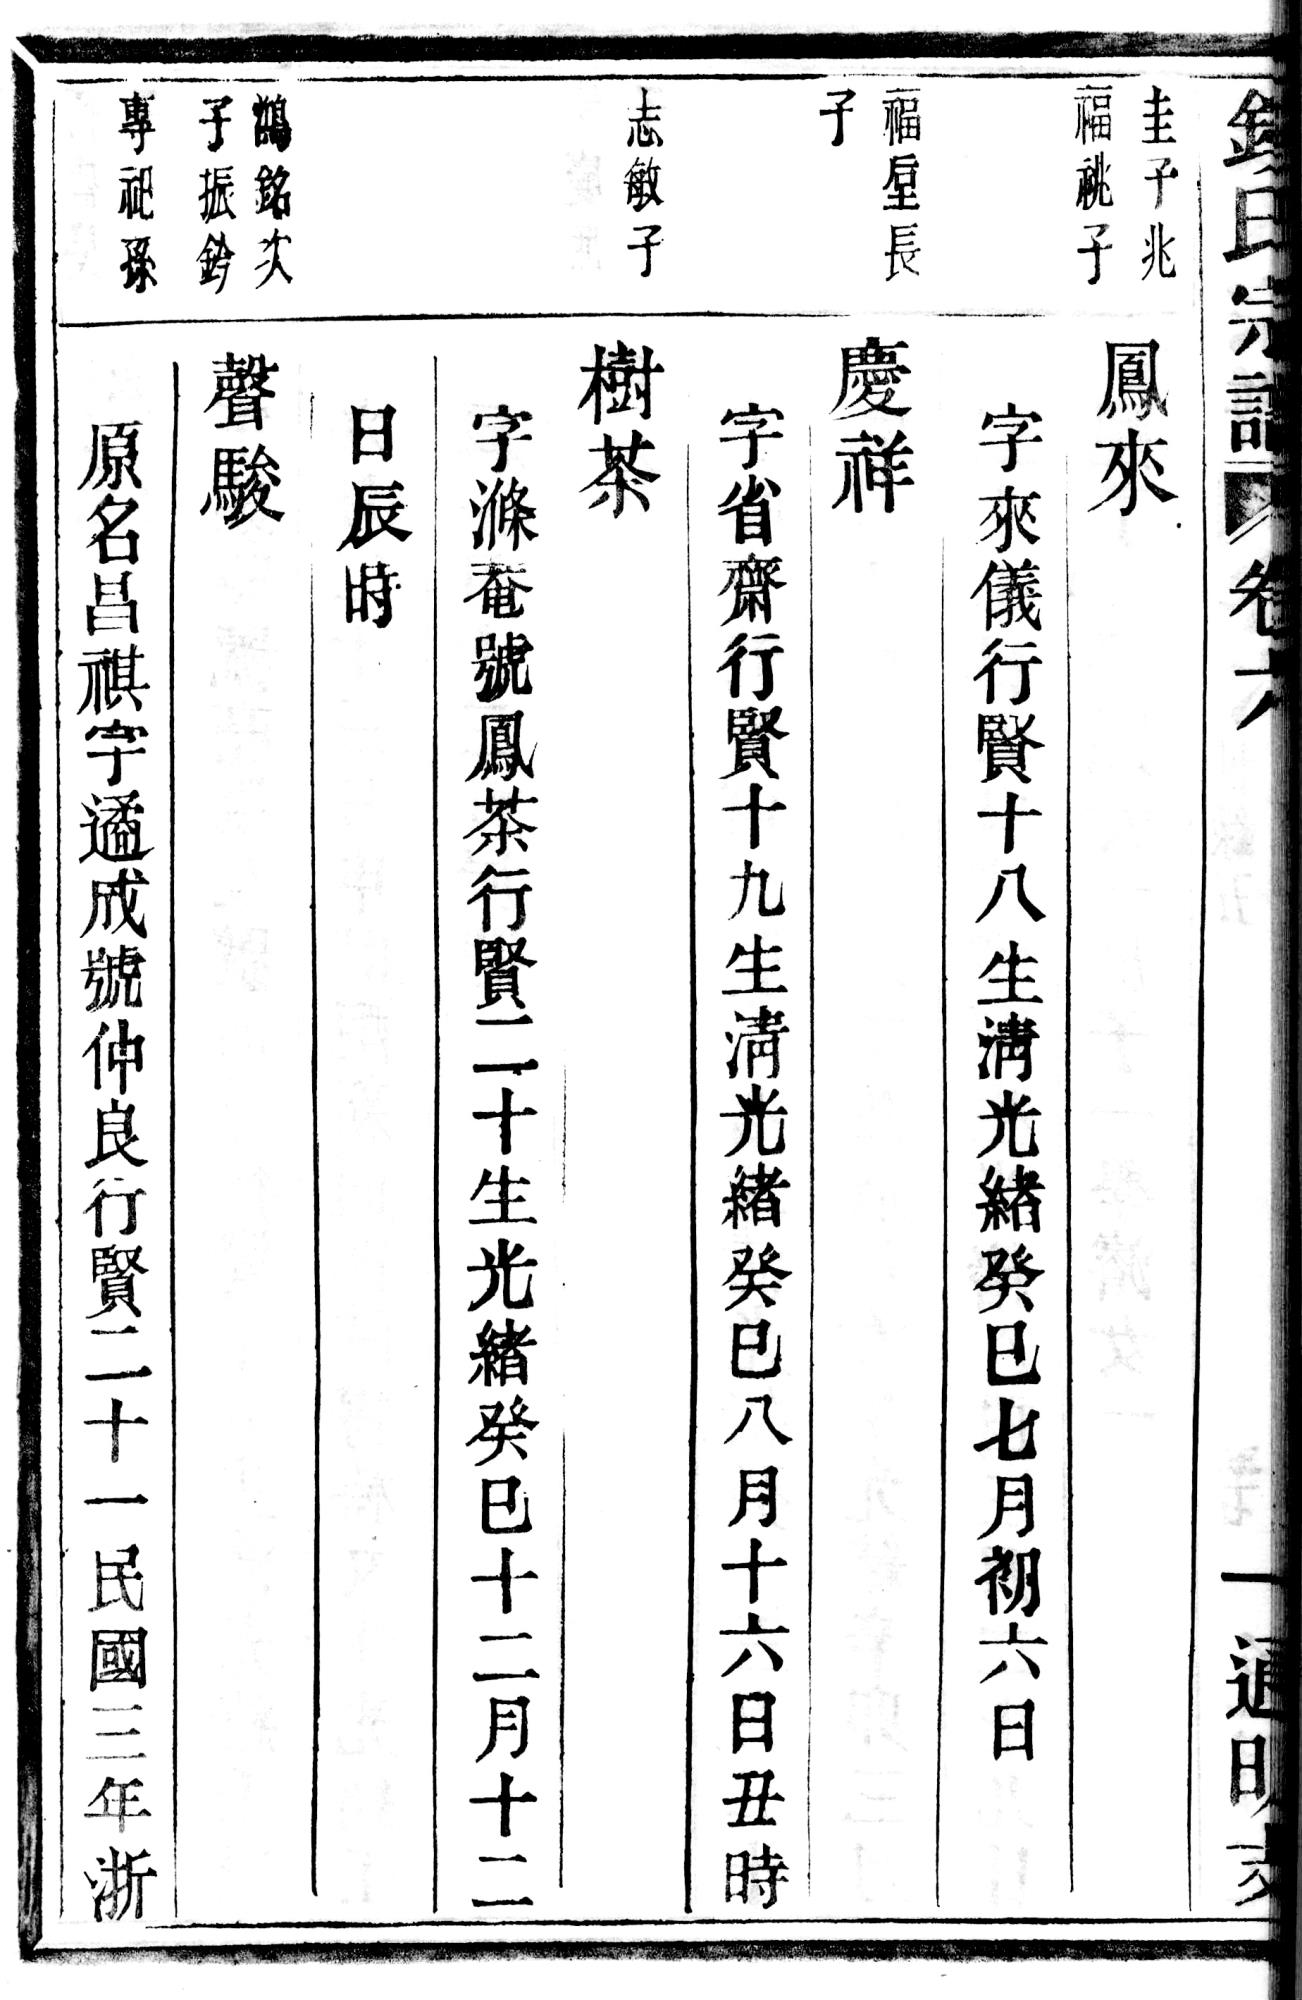 錢氏宗譜 卷六 一 通明支
圭子兆
福祧子
鳳來
字來儀行賢十八生淸光緒癸巳七月初六日
福堂長
子
慶祥
字省齋行賢十九生淸光緒癸巳八月十六日丑時
志敏子
樹荼
字滌菴號鳳荼行賢二十生光緒癸巳十二月十二
日辰時
鵠銘次
子振鈴
專祀孫
聲駿
原名昌祺字遹成號仲良行賢二十一民國三年浙